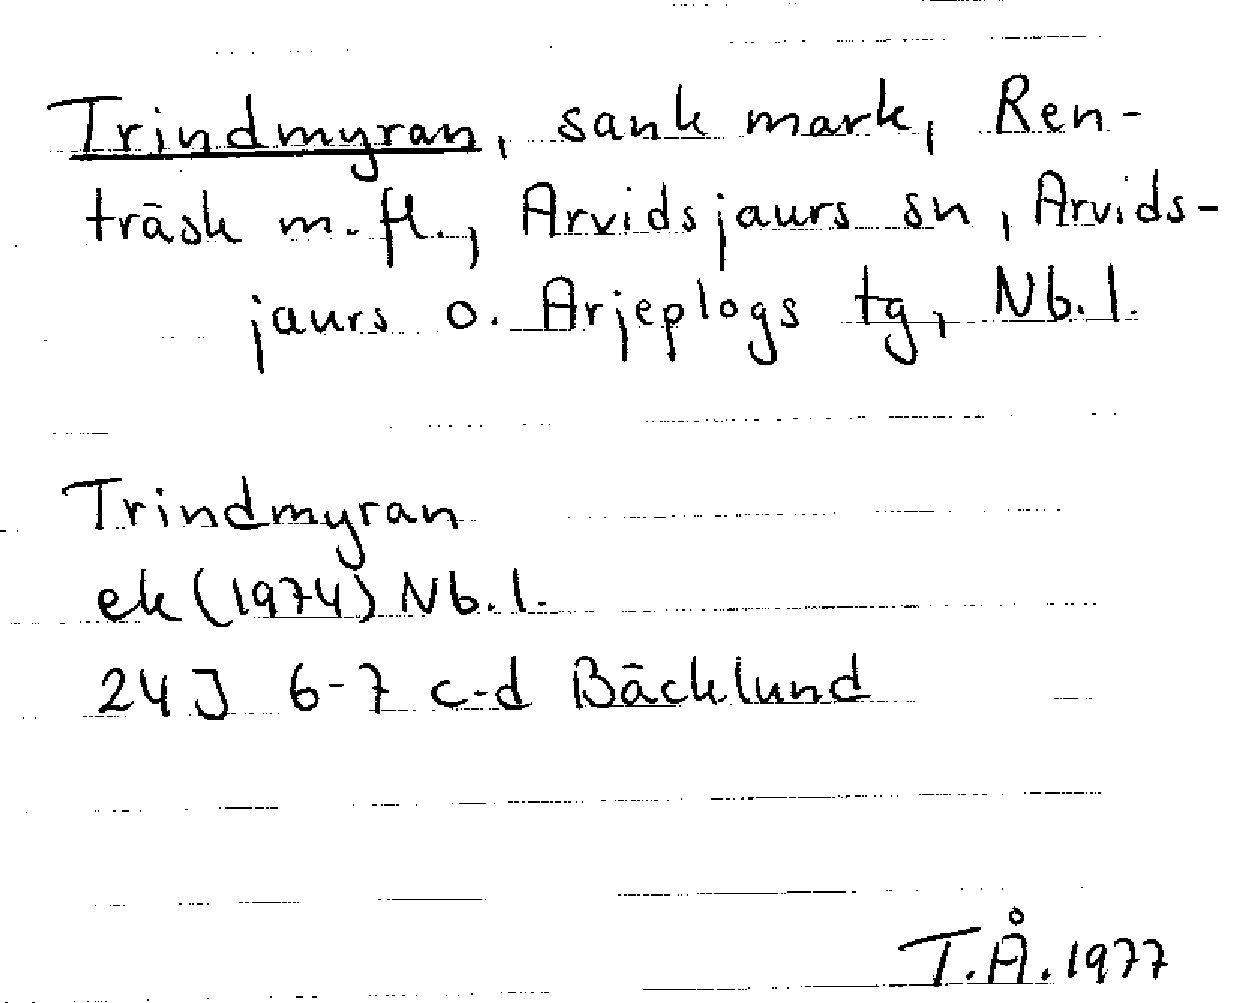 Trindmyran, sank mark, Ren-
träsk m.fl., Arvidsjaurs sn, Arvids-
jaurs o. Arjeplogs tg, Nb.l.
Trindmyran
ek (1974) Nb.l.
24J 6-7 c-d Bäcklund
T.Å. 1977